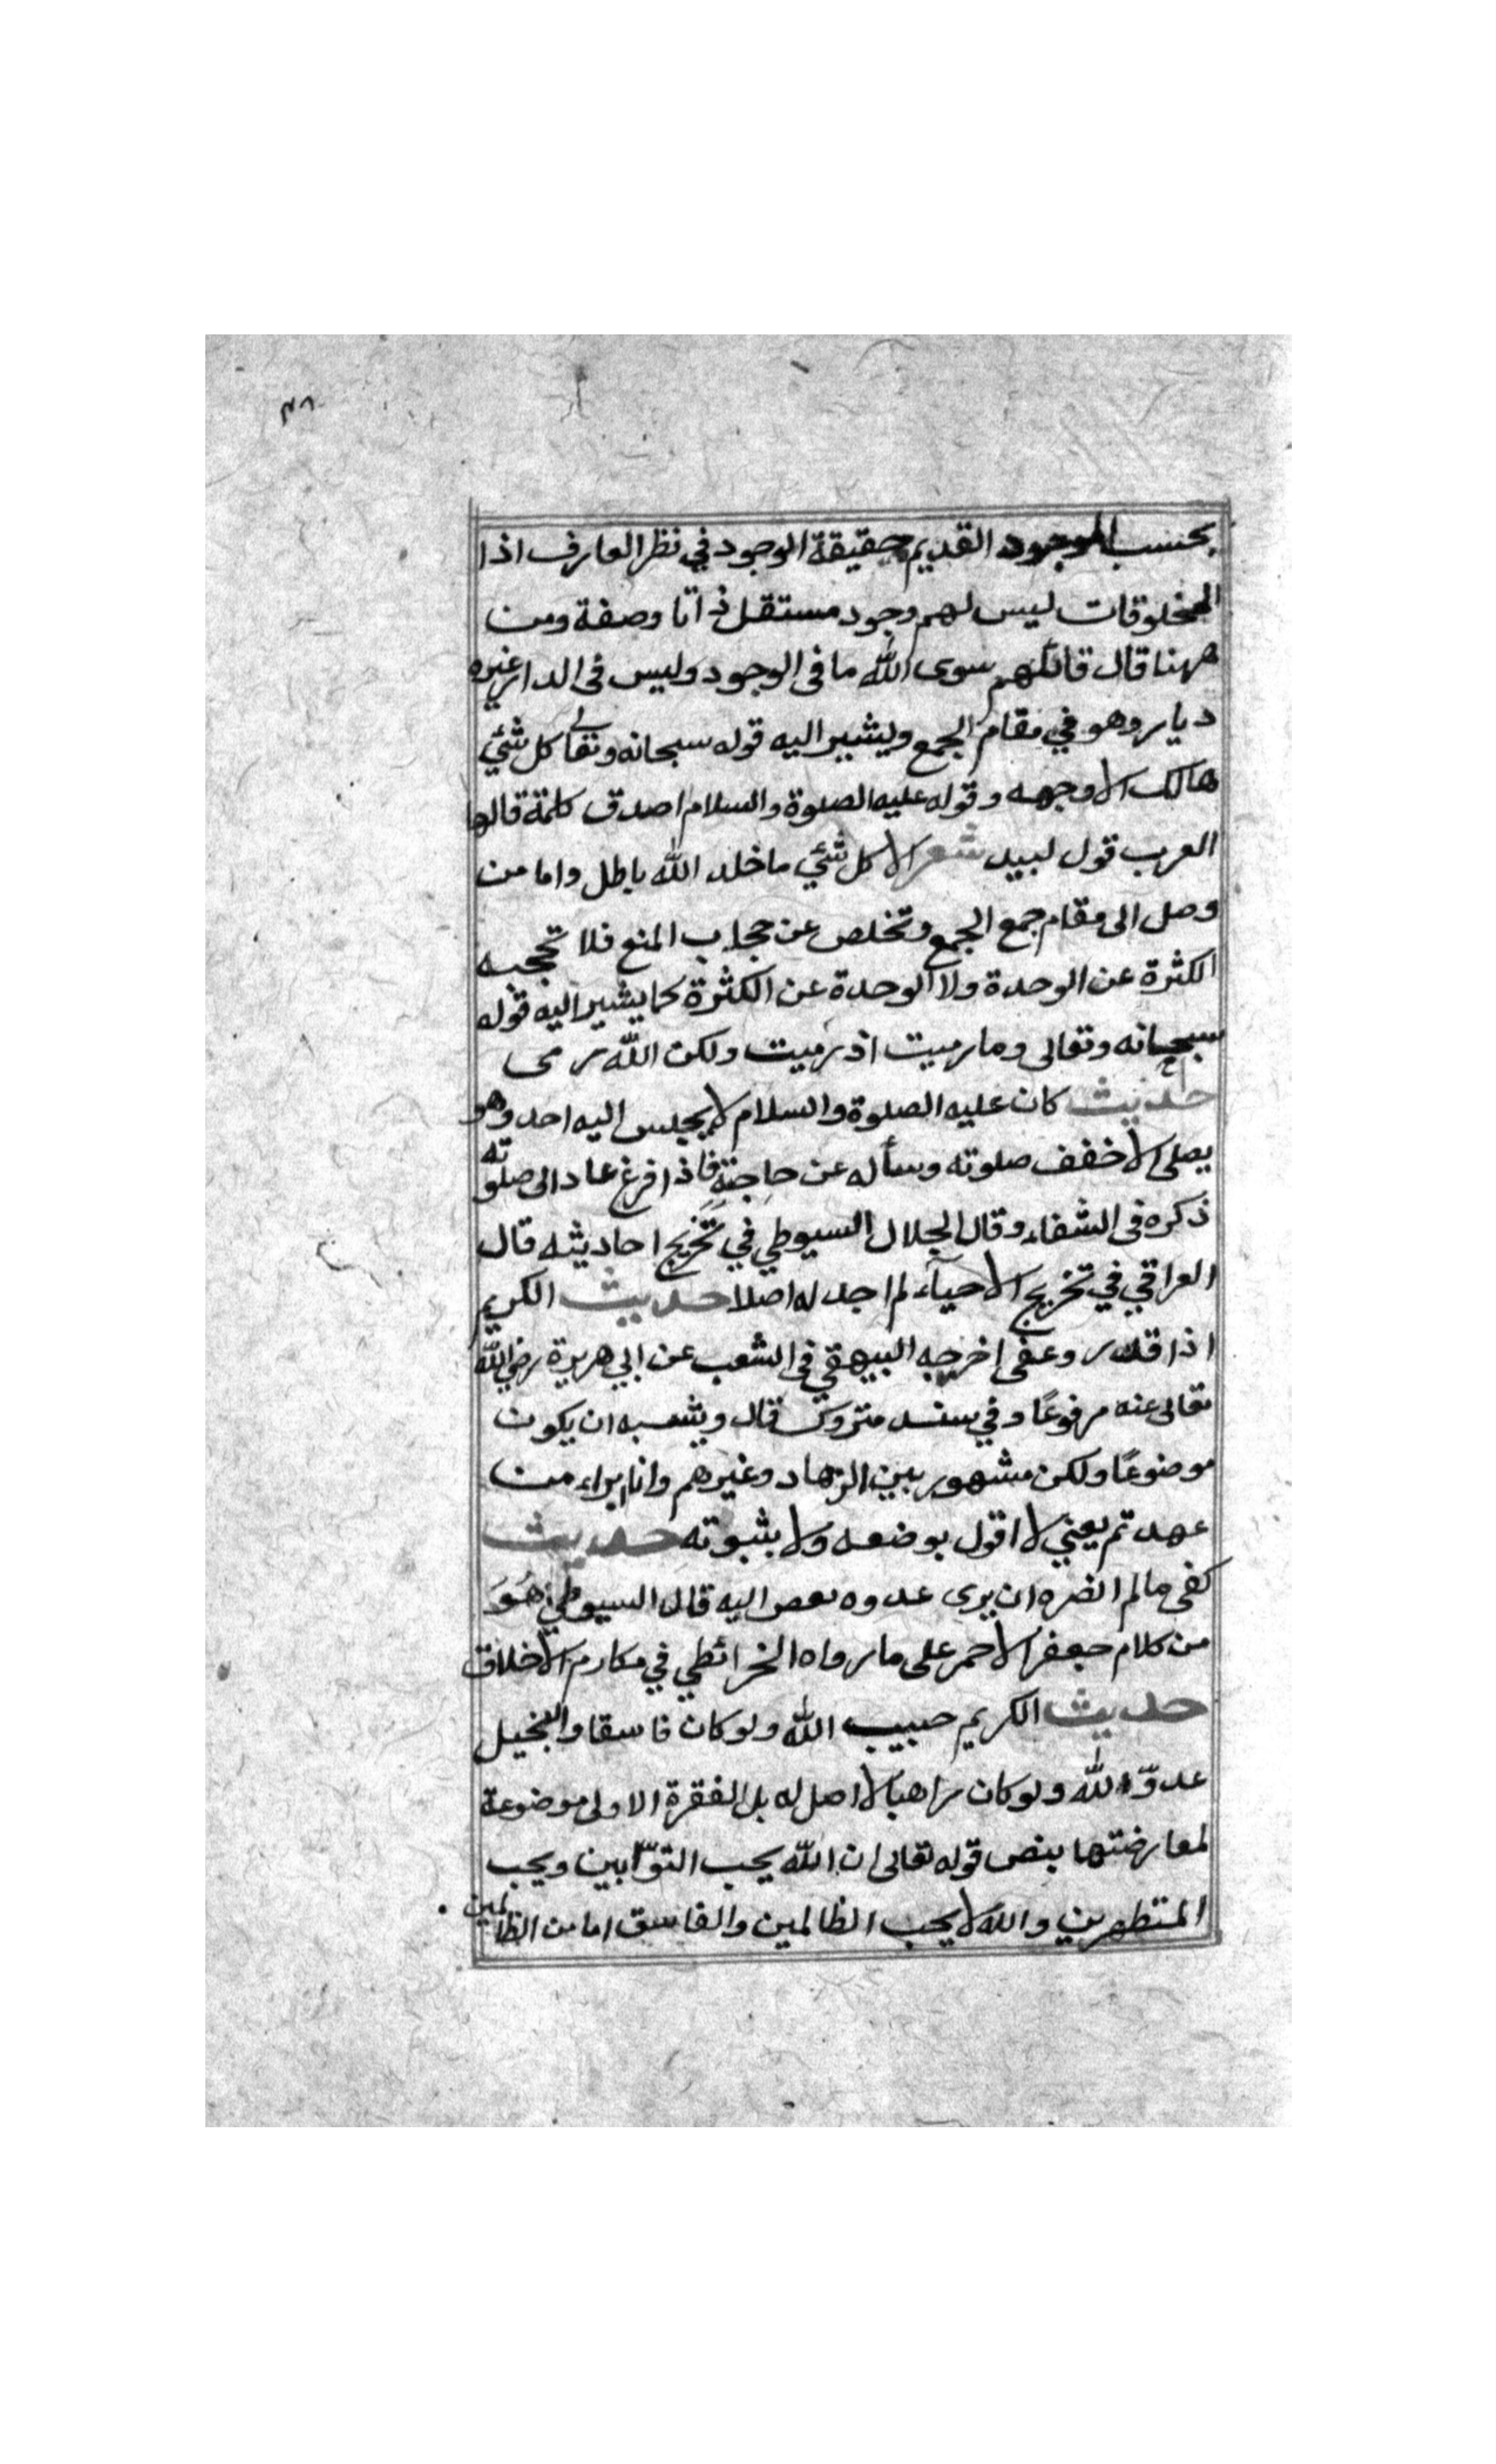 ٣٨
بحسب الموجود القديم حقيقة الوجود في نظر العارف اذا
المخلوقات ليس لهم وجود مستقل ذاتا وصفة ومن
ههنا قال قائلهم سوى الله ما في الوجود وليس في الدار غيره
ديار وهو في مقام الجمع ويشير اليه قوله سبحانه وتعالى كل شئي
هالك الا وجهه وقوله عليه الصلوة والسلام اصدق كلمة قالها
العرب قول لبيد شعر الا كل شئي ماخلد الله باطل واما من
وصل الى مقام جمع الجمع وتخلص عن حجاب المنع فلا تحجبه
الكثرة عن الوحدة ولا الوحدة عن الكثرة كما يشير اليه قوله
سبحانه وتعالى وما رميت اذ رميت ولكن الله رمى
حديث كان عليه الصلوة والسلام لا يجلس اليه احد وهو
يصلي الا خفف صلوته وسأله عن حاجته فاذا فرغ عاد الى صلوته
ذكره في الشفاء وقال الجلال السيوطي في تخريج احاديثه قال
العراقي في تخريج الاحيآء لم اجد له اصلا حديث الكريم
اذا قدر وعفى اخرجه البيهقي في الشعب عن ابي هريرة رضي الله
تعالى عنه مرفوعًا وفي سند متروك قال ويشبه ان يكون
موضوعًا ولكن مشهور بين الزهاد وغيرهم وانا براء من
عهد تم يعني لا اقول بوضعه ولا بثبوته حديث
كفى مالم انضره ان يرى عدوه بعص اليه قال السيوطي هو
من كلام جعفر الاحمر على ما رواه الخرائطي في مكارم الاخلاق
حديث الكريم حبيب الله ولو كان فاسقا والبخيل
عدوّ الله ولو كان راهبا لا اصل له بل الفقرة الاولى موضوعة
لمعارضتها بنص قوله تعالى ان الله يحب التوّابين ويحب
المتطهرين والله لا يحب الظالمين والفاسق اما من الظالمين